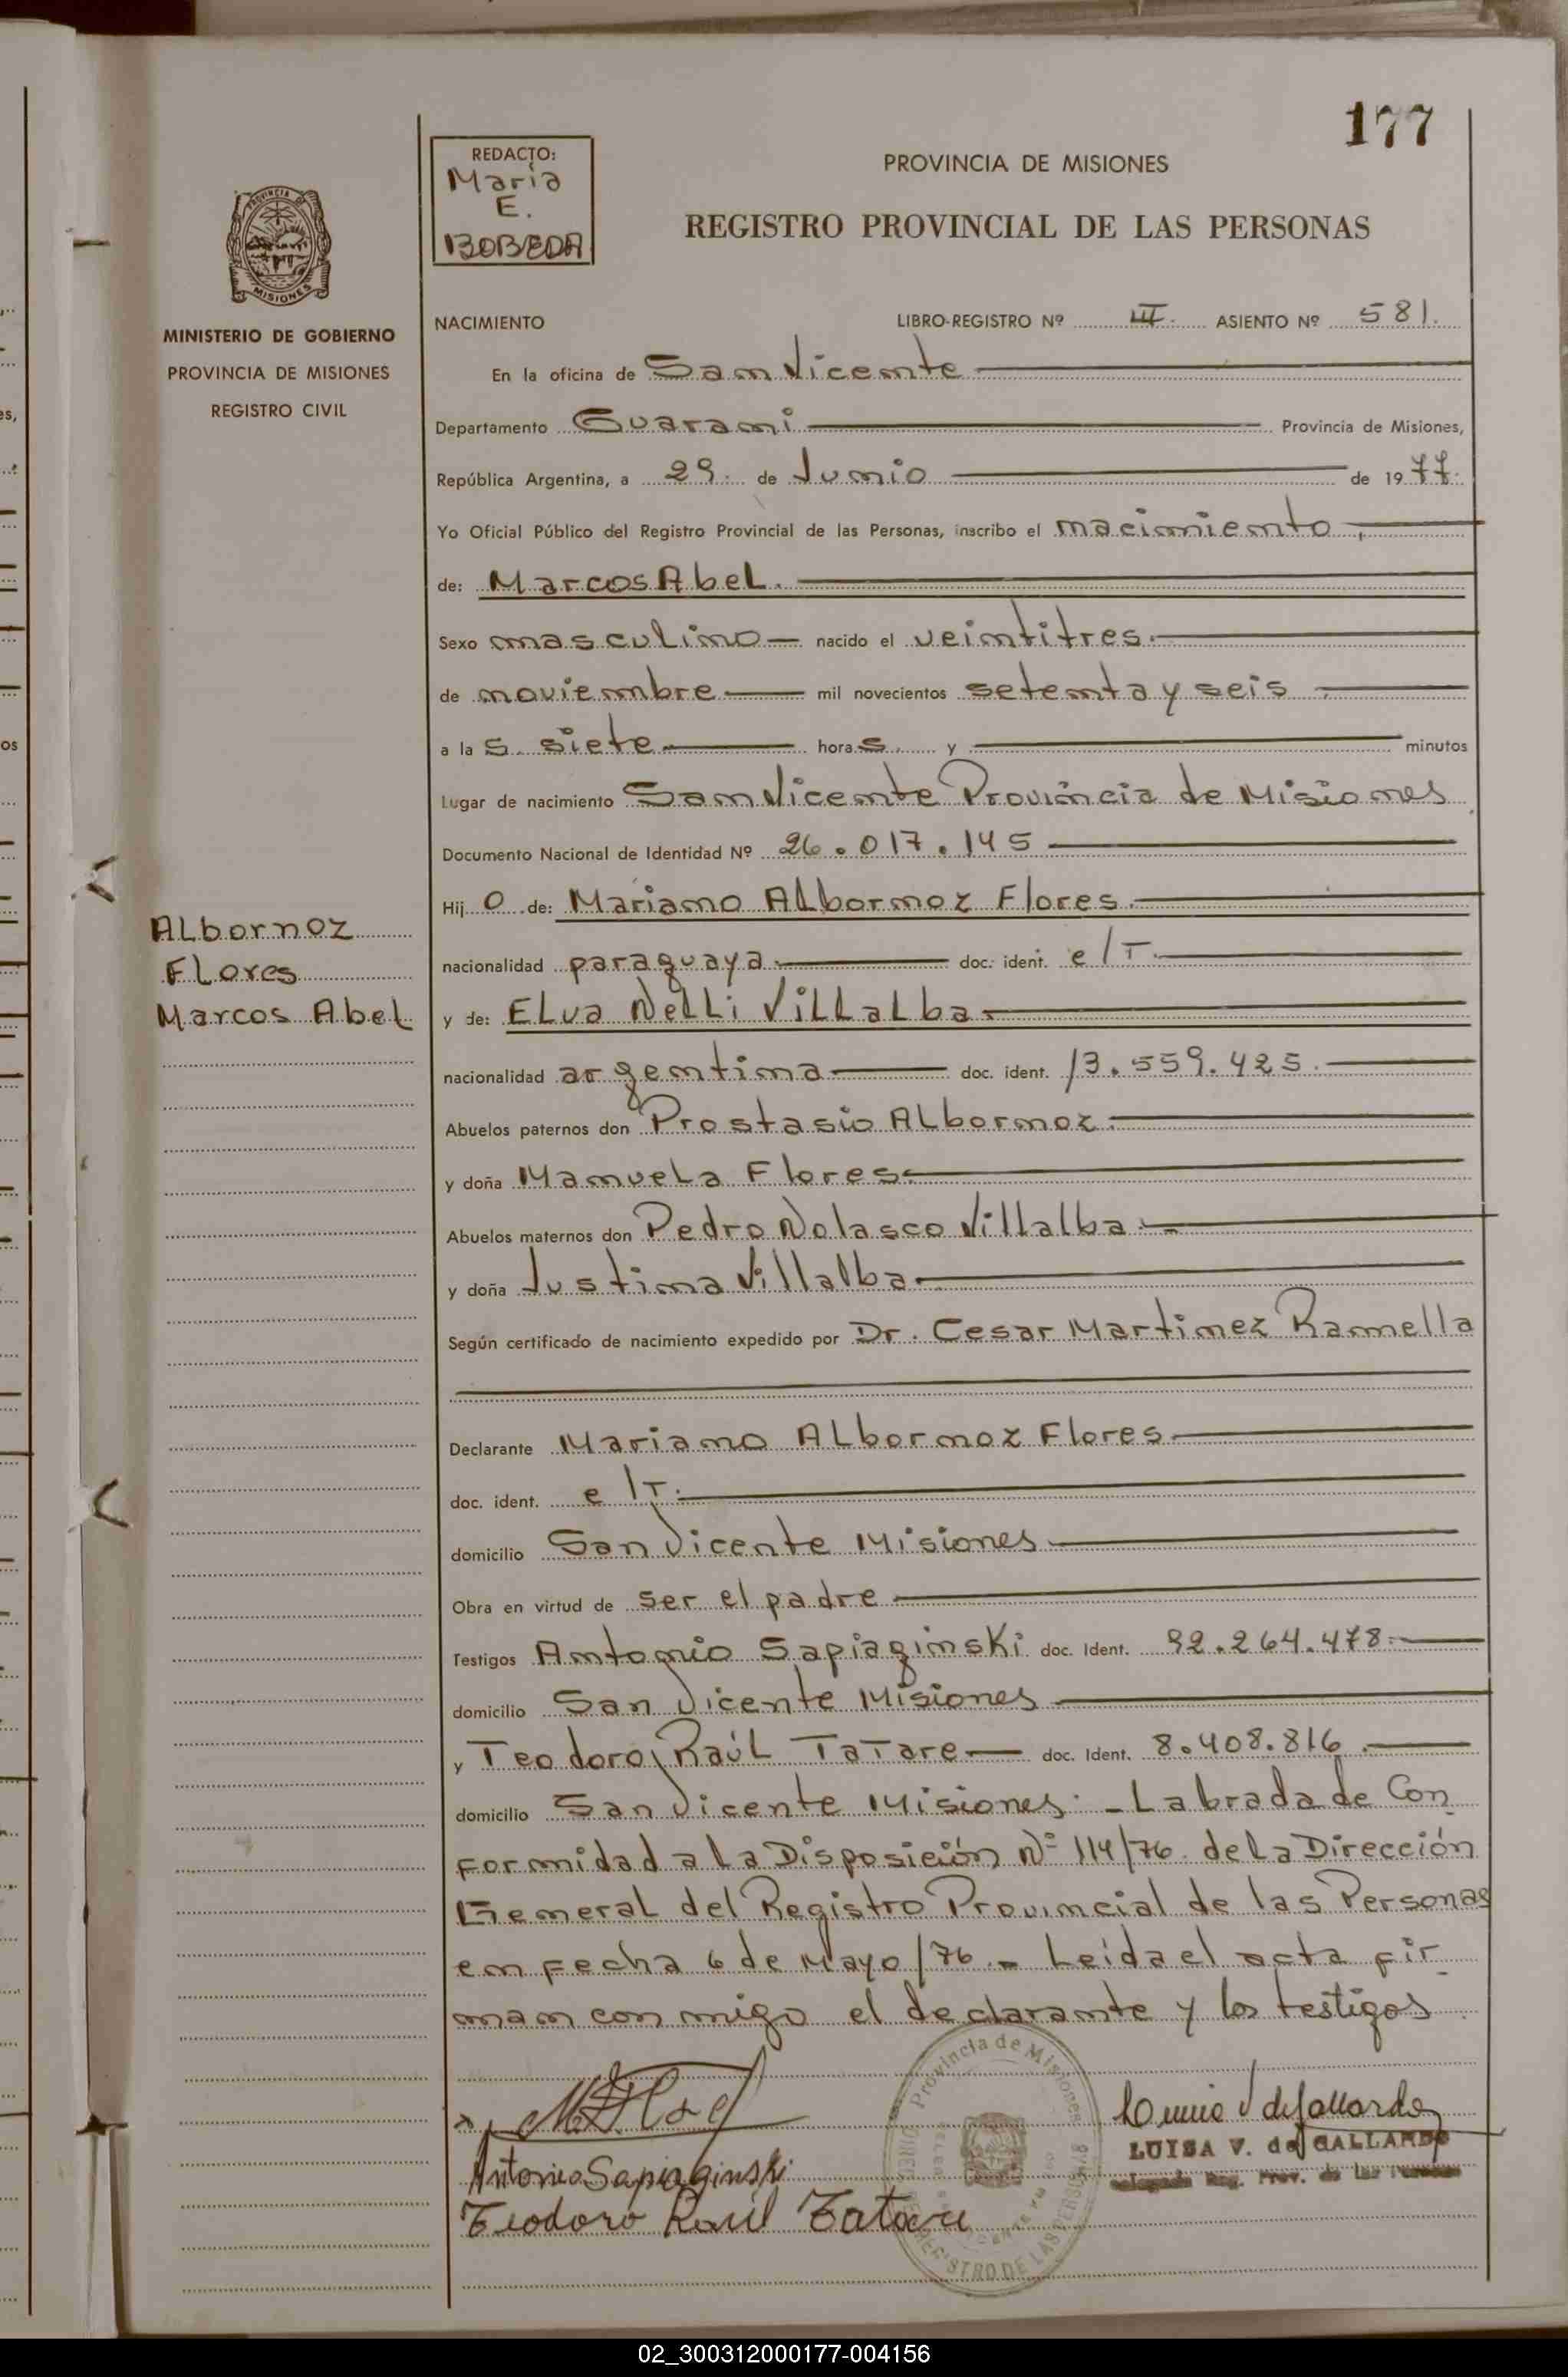 177
REDACTO:
María
E.
BOBEDA
PROVINCIA DE MISIONES
REGISTRO PROVINCIAL DE LAS PERSONAS
PROVINCIA DE
MISIONES
MINISTERIO DE GOBIERNO
PROVINCIA DE MISIONES
REGISTRO CIVIL
NACIMIENTO LIBRO-REGISTRO Nº III. ASIENTO Nº 581.
En la oficina de San Vicente
Departamento Guarani Provincia de Misiones,
República Argentina, a 29. de Junio de 1977.
Yo Oficial Público del Registro Provincial de las Personas, inscribo el nacimiento
de: Marcos Abel.
Sexo masculino nacido el veintitres.
de noviembre mil novecientos setenta y seis
a las siete horas y minutos
Lugar de nacimiento San Vicente Provincia de Misiones
Documento Nacional de Identidad Nº 26.017.145
Hijo de: Mariano Albornoz Flores.
nacionalidad paraguaya doc. ident. e/T.
y de: Elva Nelli Villalba
nacionalidad argentina doc. ident. 13.559.425.
Abuelos paternos don Prostasio Albornoz.
y doña Manuela Flores
Abuelos maternos don Pedro Nolasco Villalba.
y doña Justina Villalba
Según certificado de nacimiento expedido por Dr. Cesar Martinez Ramella
Declarante Mariano Albornoz Flores
doc. ident. e/T.
domicilio San Vicente Misiones
Obra en virtud de ser el padre
Testigos Antonio Sapiaginski doc. Ident. 92.264.478.
domicilio San Vicente Misiones
y Teodoro Raúl Tatare doc. Ident. 8.408.816.
domicilio San Vicente Misiones. - Labrada de Con
formidad a la Disposición Nº 114/76. de la Dirección
General del Registro Provincial de las Personas
en fecha 6 de Mayo/76.- Leída el acta fir
man conmigo el declarante y los testigos
Albornoz
Flores
Marcos Abel
Antonio Sapiaginski
Teodoro Raúl Tatare
Provincia de Misiones
REGISTRO DE LAS PERSONAS
LUISA V. de GALLARDO
Delegada Reg. Prov. de las Personas
02_300312000177-004156